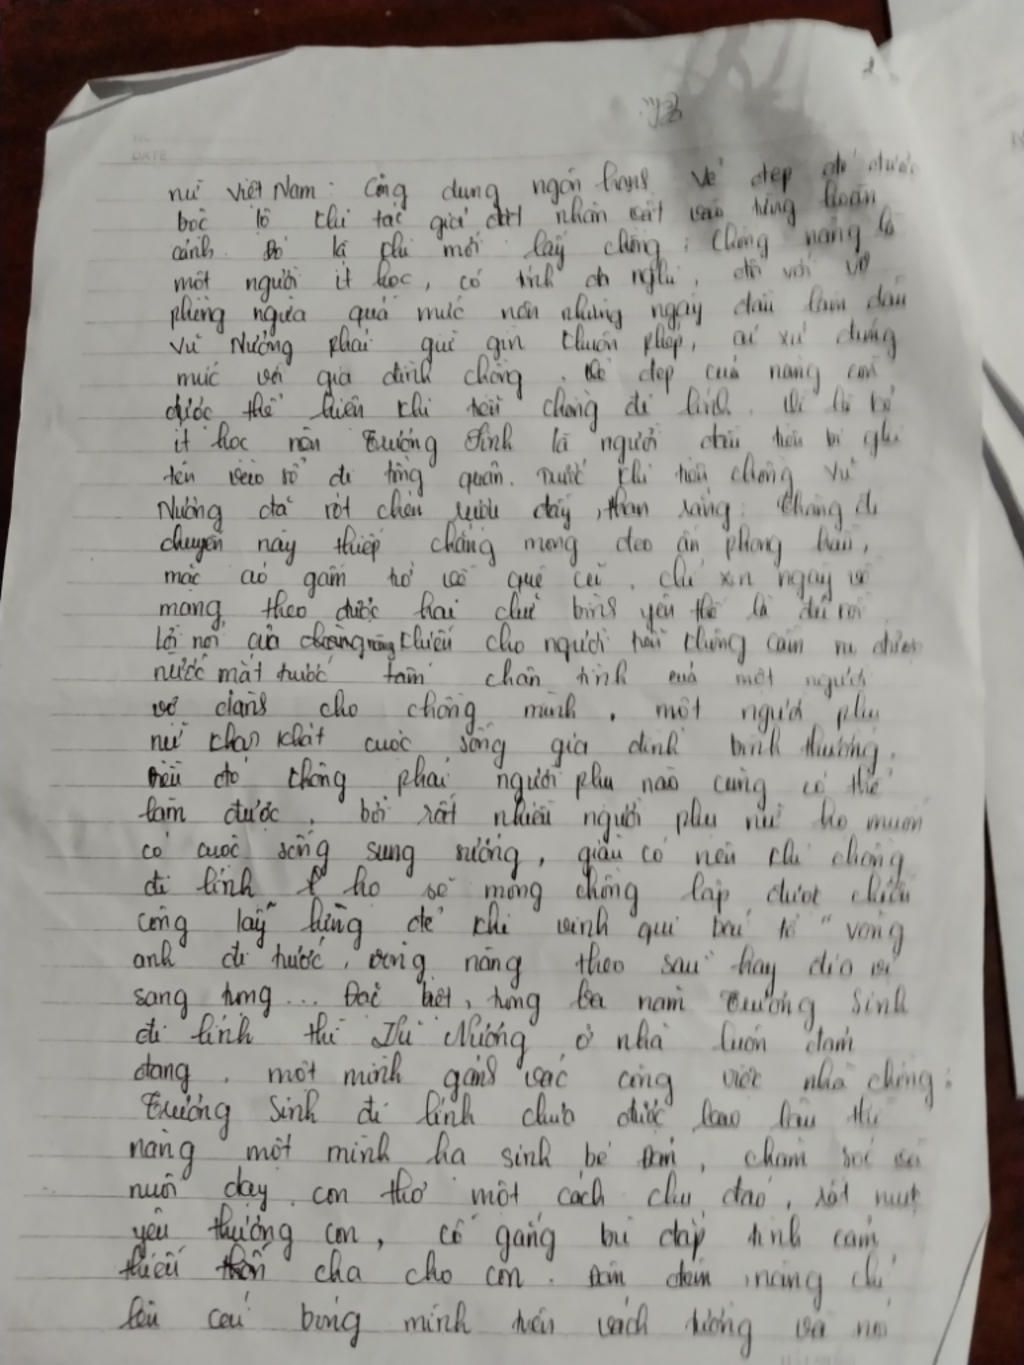 nữ Việt Nam: Công dung ngôn hạnh. Vẻ đẹp đó được
bộc lộ khi tác giả đặt nhân vật vào từng hoàn
cảnh. Đó là khi mới lấy chồng: Chồng nàng là
một người ít học, có tính đa nghi, đối với vợ
phòng ngừa quá mức nên những ngày đầu làm dâu
Vũ Nương phải giữ gìn khuôn phép, cư xử đúng
mực với gia đình chồng. Vẻ đẹp của nàng còn
được thể hiện khi tiễn chồng đi lính. Vì là kẻ
ít học nên Trương Sinh là người đầu tiên bị ghi
tên vào sổ đi tòng quân. Trước khi tiễn chồng Vũ
Nương đã rót chén rượu đầy, than rằng: Chàng đi
chuyến này thiếp chẳng mong đeo ấn phong hầu,
mặc áo gấm trở về quê cũ, chỉ xin ngày về
mang theo được hai chữ bình yên thế là đủ rồi
Lời nói của nàng khiến cho người tiễn không cầm nổi được
nước mắt trước tấm chân tình của một người
vợ dành cho chồng mình, một người phụ
nữ khao khát cuộc sống gia đình bình thường.
Điều đó không phải người phụ nào cũng có thể
làm được, bởi rất nhiều người phụ nữ họ muốn
có cuộc sống sung sướng, giàu có nên khi chồng
đi lính họ sẽ mong chồng lập được chiến
công lẫy lừng để khi vinh qui bái tổ "võng
anh đi trước, võng nàng theo sau" hay địa vị
sang trọng... Đặc biệt, trong ba năm Trương Sinh
đi lính thì Vũ Nương ở nhà luôn đảm
đang, một mình gánh vác công việc nhà chồng:
Trương Sinh đi lính chưa được bao lâu thì
nàng một mình hạ sinh bé Đản, chăm sóc và
nuôi dạy con thơ một cách chu đáo, rất mực
yêu thương con, cố gắng bù đắp tình cảm
thiếu thốn cha cho con. Đêm đêm, nàng chỉ
lên cái bóng mình trên vách tường và nói